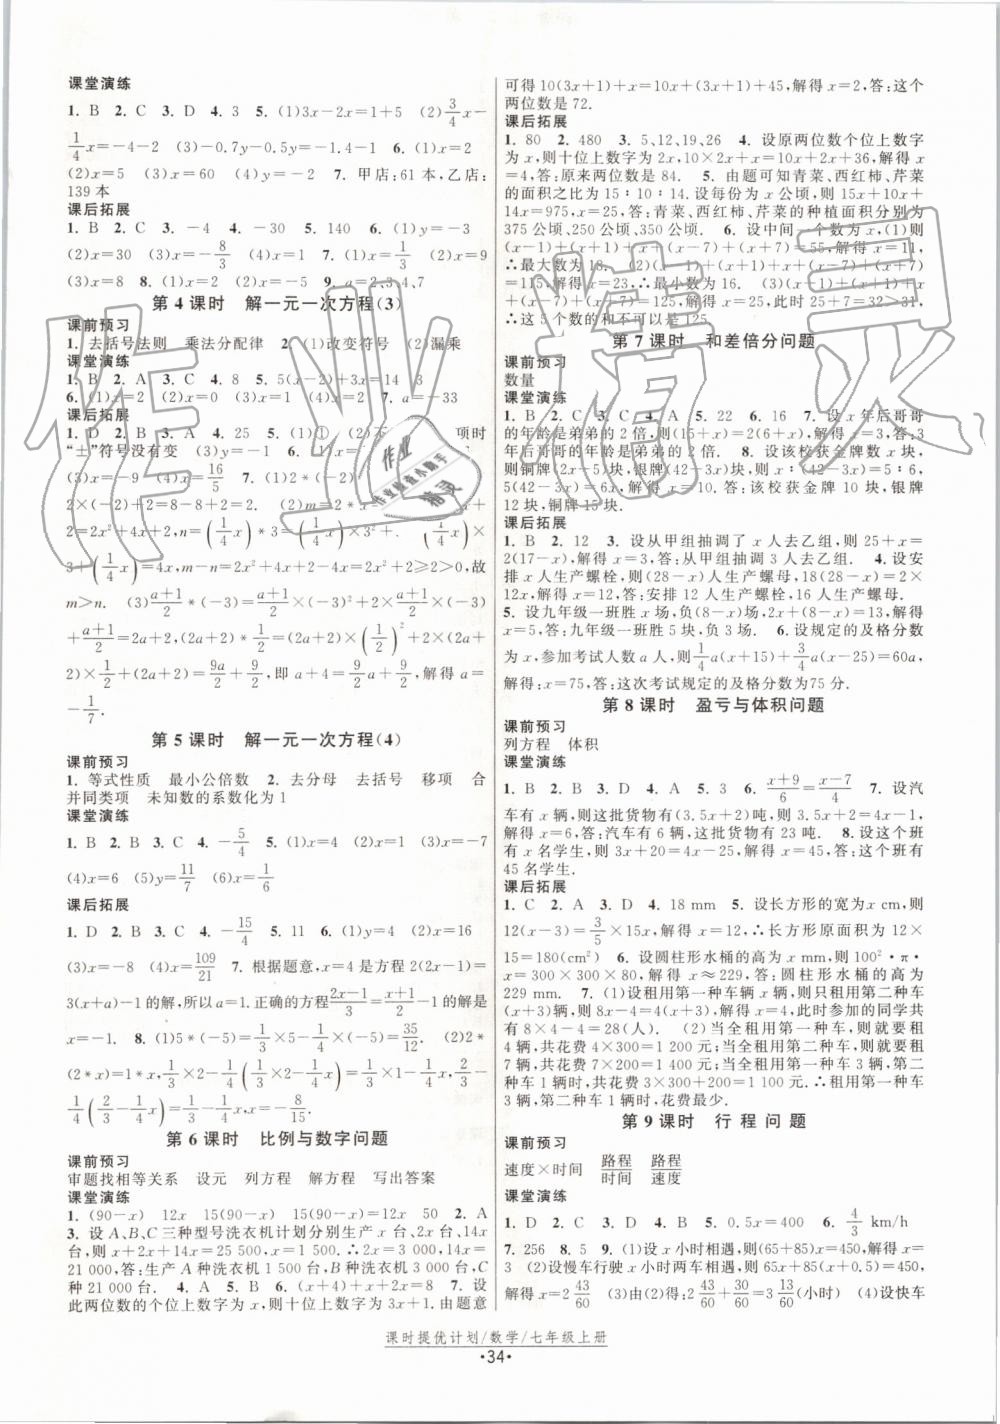 课堂演练
1. B 2. C 3. D 4. 3 5. (1)3x-2x=1+5 (2)3/4x-
1/4x=-4-2 (3)-0.7y-0.5y=-1.4-1 6. (1)x=2
(2)x=5 (3)x=60 (4)y=-2 7. 甲店:61本,乙店:
139本
课后拓展
1. B 2. C 3. -4 4. -30 5. 140 6. (1)y=-3
(2)x=30 (3)x=-8/3 (4)x=1 7. (1)x=1/3 (2)x=9
(3)x=-1 8. (1)x=2 (2)x=-5 9. a=2,3,4,7
第4课时 解一元一次方程(3)
课前预习
1. 去括号法则 乘法分配律 2. (1)改变符号 (2)漏乘
课堂演练
1. B 2. A 3. C 4. 8 5. 5(x-2)+3x=14 3
6. (1)x=2 (2)x=0 (3)x=1 7. a=-33
课后拓展
1. D 2. B 3. A 4. 25 5. (1)① (2)不 项时
“±”符号没有变 (3)x=-2 6. (1)x=6 (2)x=
(3)x=-9 (4)x=16/5 7. (1)2*(-2)
2×(-2)+2=8-8+2=2. (2)m=2*x=
=2x²+4x+2,n=(1/4x)*3=(1/4x)×3²+2.
3+(1/4x)=4x,m-n=2x²+4x+2-4x=2x²+2≥2>0,故
m>n. (3)a+1/2*(-3)=a+1/2×(-3)²+2×a+1/2×(-3)
+a+1/2=2a+2,(2a+2)*1/2=(2a+2)×(1/2)²+2×(2a+
2)×1/2+(2a+2)=9a/2+9/2,即a+4=9/2a+9/2,解得a=
-1/7.
第5课时 解一元一次方程(4)
课前预习
1. 等式性质 最小公倍数 2. 去分母 去括号 移项 合
并同类项 未知数的系数化为1
课堂演练
1. B 2. B 3. C 4. -5/4 5. (1)x=4 (2)x=3 (3)x=-7
(4)x=6 (5)y=11/7 (6)x=1/6
课后拓展
1. D 2. B 3. C 4. -15/4 5. 11 6. (1)y=4 (2)x=16
(3)x=-8 (4)x=109/21 7. 根据题意,x=4是方程2(2x-1)=
3(x+a)-1的解,所以a=1.正确的方程2x-1/3=x+1/2-1的解是
x=-1. 8. (1)5*(-5)=1/3×5-1/4×(-5)=35/12. (2)2*
(2*x)=1*x,1/3×2-1/4(1/3×2-1/4x)=1/3×1-1/4x,2/3-
1/4(2/3-1/4x)=1/3-1/4x,x=-8/15.
第6课时 比例与数字问题
课前预习
审题找相等关系 设元 列方程 解方程 写出答案
课堂演练
1. (90-x) 12x 15(90-x) 15(90-x)=12x 50 2. A
3. 设A、B、C三种型号洗衣机计划分别生产x台、2x台、14x
台,则x+2x+14x=25 500.∴2x=3 000,14x=
21 000.答:生产A种洗衣机1 500台,B种3 000台,C
种21 000台. 4. A 5. B 6. (x+4)+x+2x=8 7. 设
此两位数的个位上数字为x,则十位上数字为3x+1,由题意
可得10(3x+1)+x=10x+(3x+1)+45,解得x=2,答:这个
两位数是72.
课后拓展
1. 80 2. 480 3. 5、12、19、26 4. 设原两位数个位上数字
为x,则十位上数字为2x,10×2x+x=10x+2x+36,解得x
=4,答:原来两位数是84. 5. 由题可知青菜、西红柿、芹菜
的面积之比为15∶10∶14.设每份为x公顷,则15x+10x+
14x=975,x=25,答:青菜、西红柿、芹菜的种植面积分别为
375公顷、250公顷、350公顷. 6. 设中间一个数为x,(1)则
(x-1)+(x+1)+x+(x-7)+(x+7)=55,解得x=11,
∴最大数为18. (2)(x-1)+(x+1)+x+(x-7)+(x+7)
=115,解得x=23,∴最小数为16. (3)x=25,此时25+7=32>31,
∴这5个数的和不可以是125.
第7课时 和差倍分问题
课前预习
数量
课堂演练
1. B 2. C 3. C 4. A 5. 22 6. 16 7. 设x年后哥哥
的年龄是弟弟的2倍,则(15+x)=2(6+x),解得x=3,答:3
年后哥哥的年龄是弟弟的2倍. 8. 设该校获金牌数x块,
则铜牌2(x-2)块,银牌(42-3x)块,x∶(42-3x)=5∶6,
5(42-3x)=6x,解得x=10.答:该校获金牌10块,银牌
12块,铜牌15块.
课后拓展
1. B 2. 12 3. 设从甲组抽调了x人去乙组,则25+x=
2(17-x),解得x=3,答:从甲组抽调3人去乙组. 4. 设安
排x人生产螺栓,(28-x)人生产螺母,18(28-x)=2×
12x,解得x=12,答:安排12人生产螺栓,16人生产螺母.
5. 设九年级一班胜x场,负(8-x)场,2x+(8-x)=13,解得
x=5,答:九年级一班胜5场,负3场. 6. 设规定的及格分数
为x,参加考试人数a人,则1/4a(x+15)+3/4a(x-25)=60a,
解得:x=75,答:这次考试规定的及格分数为75分.
第8课时 盈亏与体积问题
课前预习
列方程 体积
课堂演练
1. B 2. B 3. D 4. A 5. 3 6. x+9/6=x-7/4 7. 设汽
车有x辆,则这批货物有(3.5x+2)吨,则3.5x+2=4x-1,
解得x=6,答:汽车有6辆,这批货物有23吨. 8. 设这个班
有x名学生,则3x+20=4x-25,解得x=45,答:这个班有
45名学生.
课后拓展
1. C 2. A 3. D 4. 18 mm 5. 设长方形的宽为x cm,则
12(x-3)=3/5×15x,解得x=12,∴长方形原面积为12×
15=180(cm²) 6. 设圆柱形水桶的高为x mm,则100²·π·
x=300×300×80,解得x≈229,答:圆柱形水桶的高为
229 mm. 7. (1)设租用第一种车辆x辆,则只租用第二种车
(x+3)辆,则8x-4=4(x+3),解得x=4,此时参加的同学共
有8×4-4=28(人). (2)当全租用第一种车,则就要租
4辆,共花费4×300=1 200元;当全租用第二种车,则就要租
7辆,共花费7×200=1 400元;当租用第一种车3辆,第二
种车1辆时,共花费3×300+1×200=1 100元.∴租用第一种车3
辆、第二种车1辆时,花费最少.
第9课时 行程问题
课前预习
速度×时间 路程/时间 路程/速度
课堂演练
1. D 2. C 3. D 4. B 5. 0.5x=400 6. 4/3 km/h
7. 256 8. 5 9. (1)设x小时相遇,则(65+85)x=450,解得x=
3 (2)设慢车行驶x小时两车相遇,则65x+85(x+0.5)=450,
解得x=2 43/60 (3)由(2)得:2 43/60+30/60=3 13/60(小时) (4)设快车
课时提优计划/数学/七年级上册
·34·